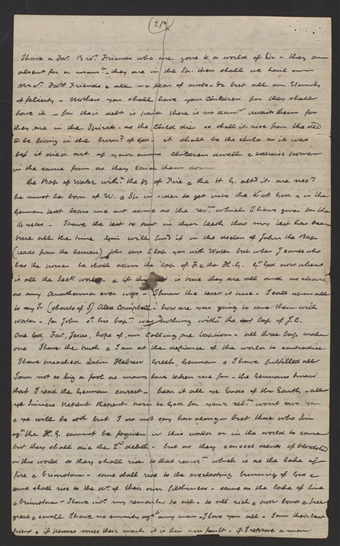 I have a Fa. Bro. Friends who are gone to a world of Sp. - they are
absent for a mom^t. - they are in the Sp. then shall we hail our
Mo. Fa. Friends & all no fear of mobs - but all an Eternity
of felicity - Mothers you shall have your Children for they shall
have it - for their debt is paid there is no damn^n. awaits them for
they are in the Spirit - as the Child dies so shall it rise from the dead
& be living in the burn^g. of God - it shall be the child as it was
bef. it died out of your arms children dwell & exercise power
in the same form as they laid them down
The Bap. of Water with^t. the B of Fire & the H G. att^g. it are nec^y.
he must be born of W. & Sp. in order to get into the K of God & in the
German text bears me out same as the rev^n. which I have given for the
14 years - I have the test to put in their teeth that my test has been
true all the time You will find it in the declar of John the Bap.
(reads from the German) John says I bap you with Water but when J comes who
has the power he shall adm^r. the bap of F. & the H. G. G^t. God now where
is all the Sect. world. & if this is true they are all
as any Anathema ever was - I know the text is true - I call upon all
to say I (shouts of I) Alex Campbell - how are you going to save them with
water - for John s^d. his bap^m. was nothing with^t. the bap of J. C.
One God, Fa., Jesus, hope of our calling, one baptism - all three bap make
one I have the truth & I am at the defiance of the world to contradict
I have preached Latin Hebrew Greek German & I have fulfilled all
I am not so big a fool as many have taken me for - the Germans know
that I read the German correct - hear it all ye Ends of the Earth - all
ye Sinners Repent Repent turn to God for your rel^n. wont save you
& ye will be but I do not say how long - but those who Sin
ag^t. the H. G. cannot be forgiven in this world or in the world to come
but they shall die the 2^nd. death - but as they concoct scenes of bloodshed
in this world so they shall rise to that resur^n. which is as the lake of
fire & brimstone - some shall rise to the everlasting burning of God &
some shall rise to the d^n. of their own filthiness - same as the lake of fire
& brimstone - I have int^d. my remarks to all - to all rich & poor bond & free
great & small I have no enmity ag^t. any man I love you all - I am their best
friend & if persons miss their mark it is their own fault - if I reprove a man